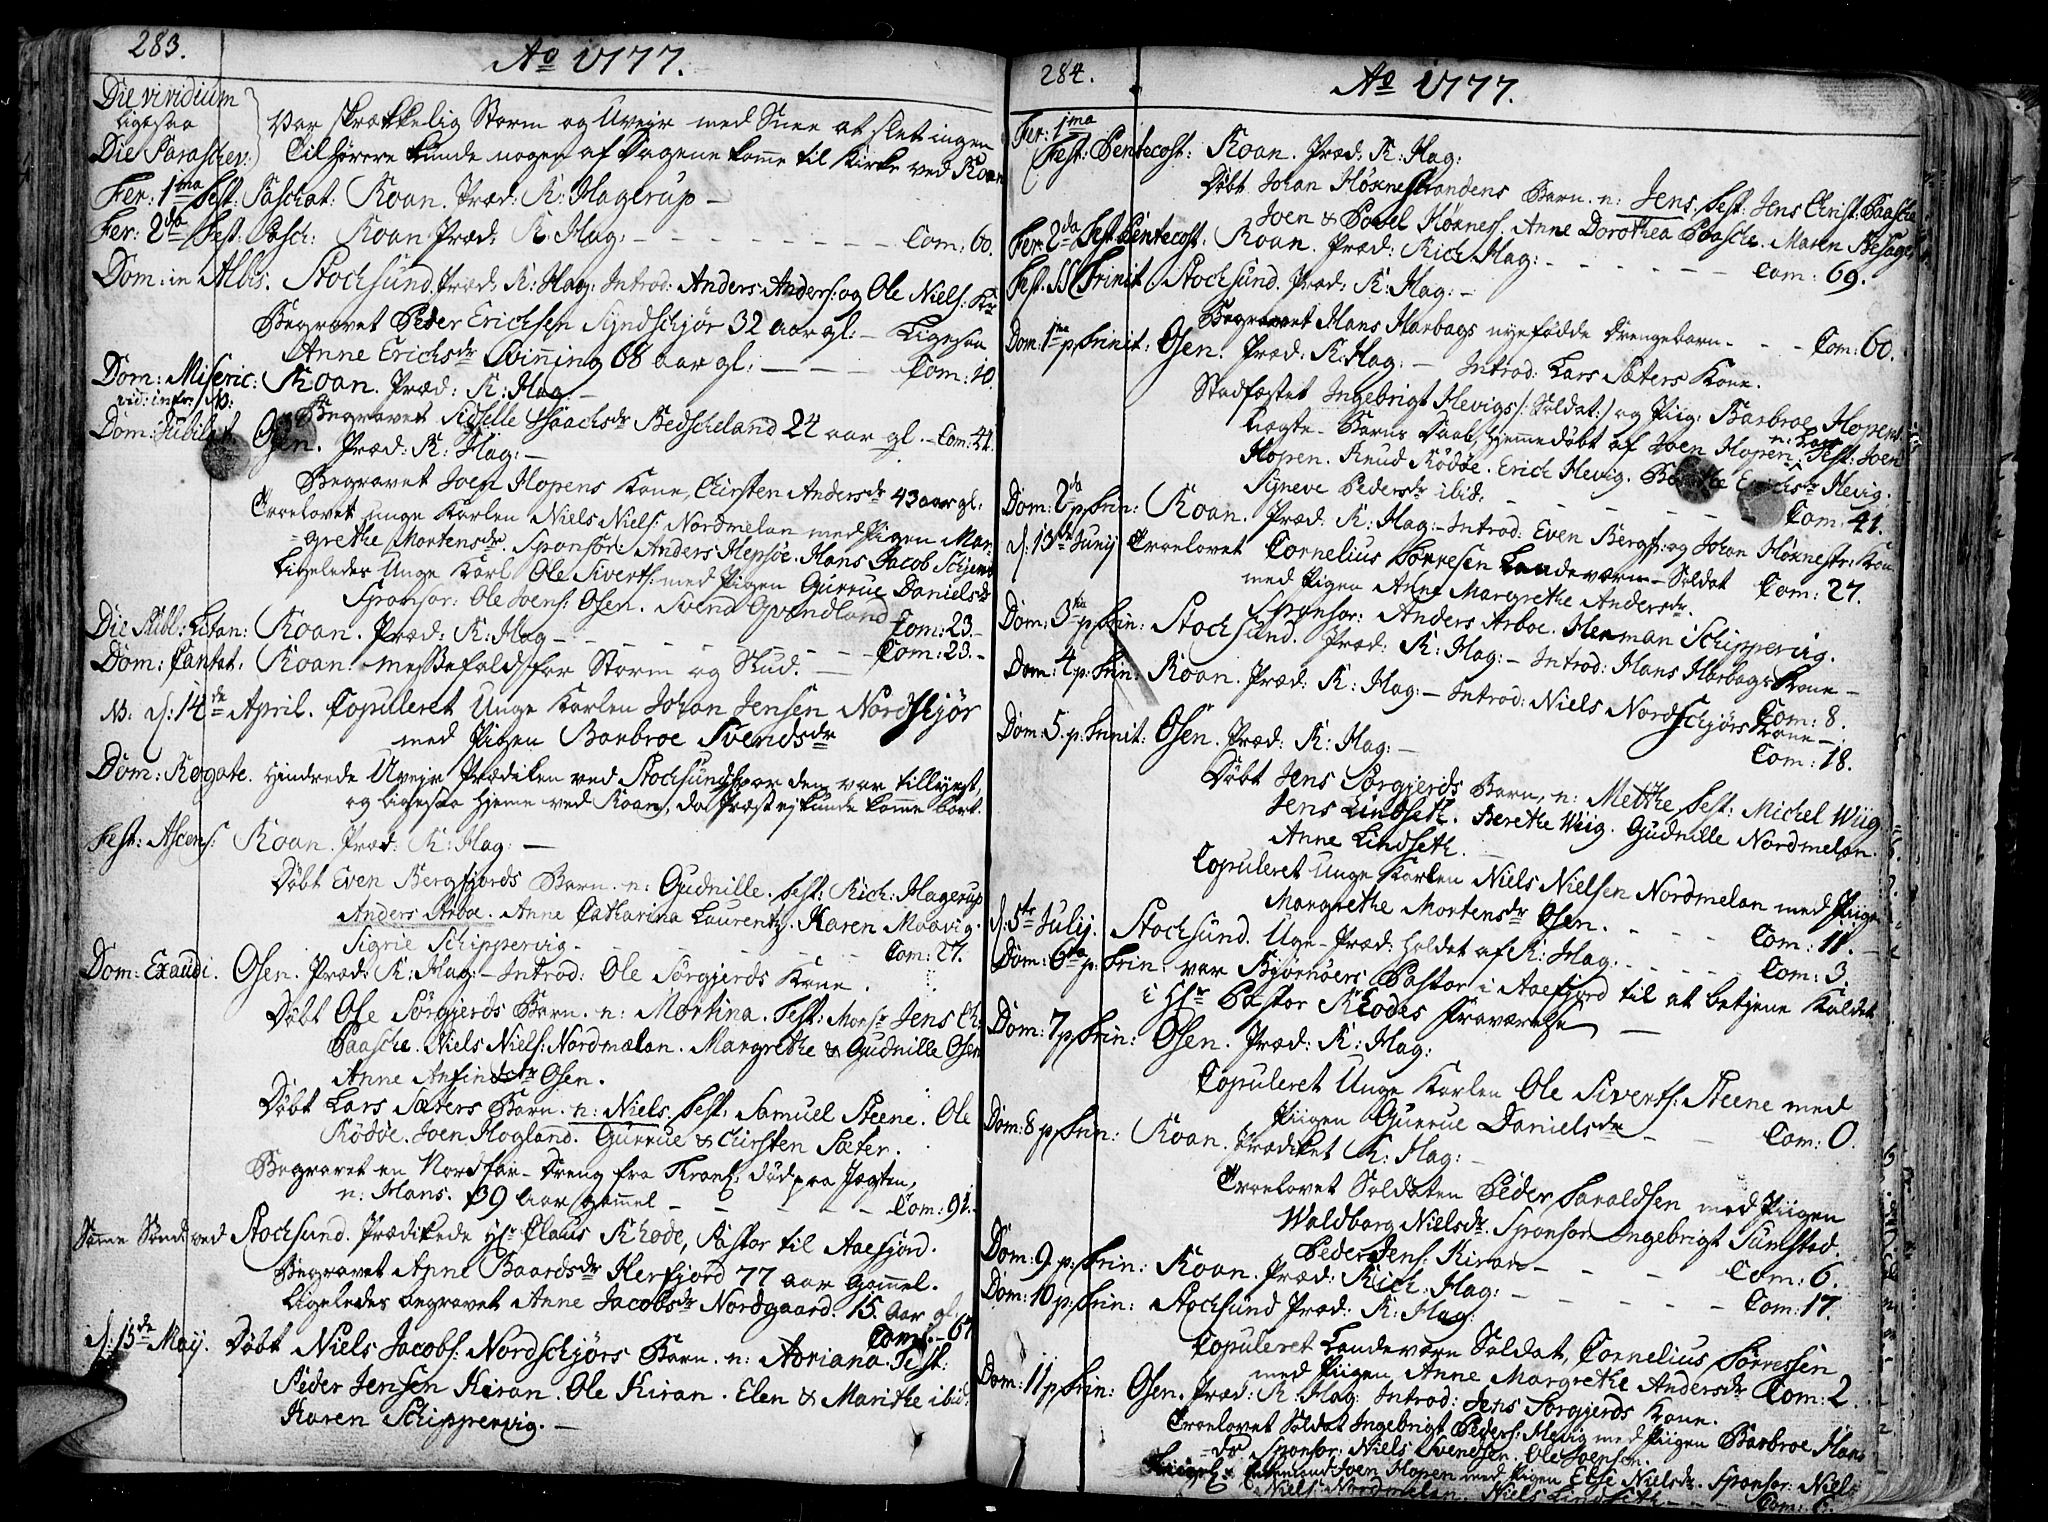 283.
Ao 1777.
Die viridium
ligesaa
Die Parascev:
Var skrækkelig Storm og Uveir med Snee at slet ingen
Tilhörere kunde nogen af Dagene komme til Kirke ved Roan
Fer: 1ma Fest: Paschat: Roan. Præd: R: Hagerup –
Fer: 2da Fest: Pasch: Roan. Præd: R: Hag: – – – Com: 60.
Dom: in Albis. Stochsund. Præd: R: Hag: Introd: Anders Anders: og Ole Niels: Kr
Begravet Peder Erichsen Syndschjör 32 aar gl: – Ligesaa
Anne Erichsdr Svinning 68 aar gl: – – – Com: 10.
Dom: Miseric: Roan. Præd: R: Hag: –
vid: infr: NB:
Begravet Sidselle Isaachsdr Bedscheland 24 aar gl. – Com: 41.
Dom: Jubilat Osen. Præd: R: Hag: –
Begravet Joen Hopens Kone, Kirsten Andersdr 43 aar gl.
Troelovet unge Karlen Niels Niels: Nordmelan med Pigen Mar-
grethe Mortensdr. Sponsor: Anders Hepsöe. Hans Jacob
Ligeledes Unge Karl Ole Siverts: med Pigen Gurrue Danielsdr
Sponsor: Ole Joens: Osen. Svend Opendland Com: 23.–
Die Publ: Litan: Roan. Præd: R: Hag – – – Com: 23.–
Dom: Cantat. Roan Messefald for Storm og Skud. –
NB. d: 14de April. Copuleret Unge Karlen Johan Jensen Nordskjör
med Pigen Barbroe Svendsdr
Dom: Rogate. Hindrede Uveir Prædiken ved Stochsund hvor den var tillyst,
og ligesaa hjeme ved Roan, da Præst ej kunde komme bort.
Fest: Ascens: Roan. Præd: R: Hag: –
Döbt Even Bergfjords Barn. n: Gudnille. Test: Rich: Hagerup
Anders Arboe. Anne Catharina Laurentz. Karen Maavig.
Sigrie Schippervig. – – – Com: 27.
Dom: Exaudi. Osen. Præd: R: Hag: – Introd: Ole Sörgjerds Kone.
Döbt Ole Sörgjerds Barn. n: Mortina. Test: Monsr Jens Ch:
Paasche. Niels Niels: Nordmælan. Margrethe & Gudnille Osen
Anne Anfindsdtr Osen.
Döbt Lars Sæters Barn. n: Niels. Test: Samuel Steene. Ole
Rödöe. Joen Hogland. Gurrue & Kirsten Sæter.
Begravet en Nordfar-Dreng fra Tranö: död paa Jægten,
n: Hans. 39 aar gammel – – – Com: 91.
Samme Sönd: ved Stochsund. Prædikede Hr Claus Rhode, Pastor til Aaefjord.
Begravet Anne Baardsdr Herfjord 77 aar gammel.
Ligeledes begravet Anne Jacobsdr Nordgaard. 15. Aar gl.
Com: – 67
d: 15de Maij. Döbt Niels Jacobs: Nordschjörs Barn. n: Adriana. Test:
Peder Jensen Kiran. Ole Kiran. Elen & Marithe ibid:
Karen Schippervig. –
284.
Ao 1777.
Fer: 1ma
Fest: Pentecost: Roan. Præd: R: Hag:
Döbt Johan Höxnestrandens Barn. n: Jens. Test: Jens Christ: Paasche
Joen & Povel Hönnes. Anne Dorothea Paasche. Maren
Fer: 2da Fest Pentecost. Roan. Præd: Rich: Hag: – – – Com: 69.
Fest: SS Trinit Stochsund. Præd: R: Hag: –
Begravet Hans Harbags nyefödde Drengebarn. – – – Com: 60.
Dom: 1ma p: Trinit: Osen. Præd: R: Hag: – Introd: Lars Sæters Kone.
Stadfæstet Ingebrigt Hevigs /: Soldat :/ og Piig: Barbroe Hopens
Uægte-Barns Daab, hjemmedöbt af Joen Hopen. n: Lars Test: Joen
Hopen. Knud Rödöe. Erich Hevig. Berethe Erichsdr Hevig.
Syneve Pedersdr ibid: – – – Com: 41.
Dom: 2da p: Trin: Roan. Præd: R: Hag: – Introd: Even Bergf: og Johan Höxnestr: Kon
d: 13de Junij Troelovet Cornelius Sörresen Landeværn-Soldat Com: 27.
med Pigen Anne Margrethe Andersdr.
Sponsor: Anders Arboe. Herman Schippervig.
Dom: 3tia p: Trin: Stochsund. Præd: R: Hag: – Introd: Hans Harbags Kone –
Dom: 4 p: Trin: Roan. Præd: R: Hag: – Introd: Niels Nordschjörs Kone – Com: 8.
Dom: 5. p: Trinit: Osen. Præd: R: Hag: – Com: 18.
Döbt Jens Sörgjerds Barn, n: Metthe. Test: Michel Wiig
Jens Lindseth. Berethe Wiig. Gudnille Nordmelan.
Anne Lindseth.
Copuleret Unge Karlen Niels Nielsen Nordmelan med Piigen
Margrethe Mortensdr Osen. – – – Com: 11.
d: 5te Julij. Stochsund. Uge-Præd: holdet af R: Hag: – – – Com: 3.
Dom: 6ta p: Trin: var Bjørnöers Pastor i Aaefjord til at betjene Kaldet
i Hr Pastor Rhodes Fraværelse –
Dom: 7 p: Trin: Osen. Præd: R: Hag:
Copuleret Unge Karlen Ole Siverts: Steene med
Piigen Gurrue Danielsdr – – Com: 0.
Dom: 8 p: Trin: Roan. Prædiket R: Hag: –
Troelovet Soldaten Peder Haraldsen med Piigen
Waldborg Nielsdr. Sponsor Ingebrigt Sumstad.
Peder Jens: Kiran – – – Com: 6.
Dom: 9. p: Trin: Roan. Præd: Rich: Hag: – – – Com: 17.
Dom: 10 p: Trin: Stochsund Præd: R: Hag:
Copuleret Landeværn Soldat, Cornelius Sörressen
med Piigen Anne Margrethe Andersdr Com: 2.
Dom: 11 p: Trin: Osen. Præd: R. Hag: Introd: Jens Sörgjerds Kone.
Troelovet Soldat Ingebrigt Peders: Hevig med Piigen Barbroe Hans
-dr Sponsor: Niels Svendsen. Ole Joensen.
Joen Hopen med Pigen Else Nielsdr. Sponsor: Niels
Niels: Nordmelan. Niels Lindseth – – Com: 6.